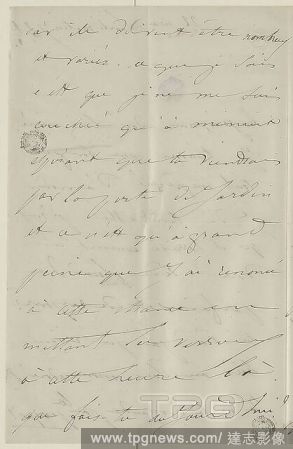 car ils doivent être nombreux
et variés. ce que je sais
c'est que je ne me suis
couché qu'à minuit
espérant que tu viendrais
par la porte du jardin
et ce n'est qu'à grand
peine que j'ai renoncé
à cette chance en
mettant le verrou
à cette heure là.
que fais-tu
TPG
www.tpgnews.com/達志影像